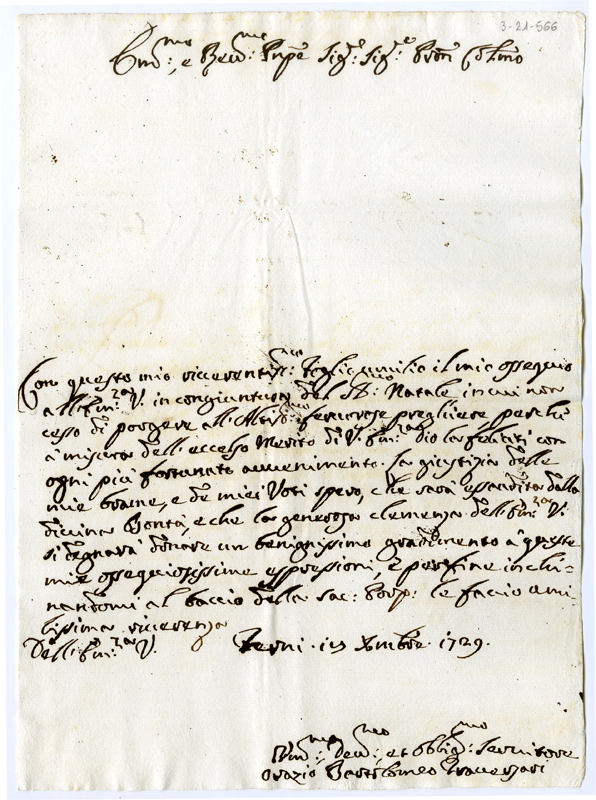 3-21-566
Em.mo, e Rev.mo Prnpe Sig.r Sig.r Pron Col.mo
Con questo mio riverentis.mo foglio umilio il mio ossequio
all'Em.za V. in congiuntura del SS.mo Natale in cui non
cesso di porgere all'Altis.mo fervorose preghiere perché
a misura dell'eccelso Merito di V. Em.za Dio la feliciti con
ogni più fortunato avvenimento. La giustizia delle
mie brame, e de miei Voti spero, che sarà essaudita dalla
divina Bontà, e che la generosa clemenza dell'Em.za V.
si degnarà donare un benignissimo gradimento a queste
mie ossequiosissime espressioni, e per fine inchi-
nandomi al baccio della Sac: Porp: le facio umi-
lissima riverenza
Dell'Em.za V. Terni Xmbre 1729.
Um.mo Dev.mo et Obblig.mo Servitore
Orazio Bartolomeo Traversari